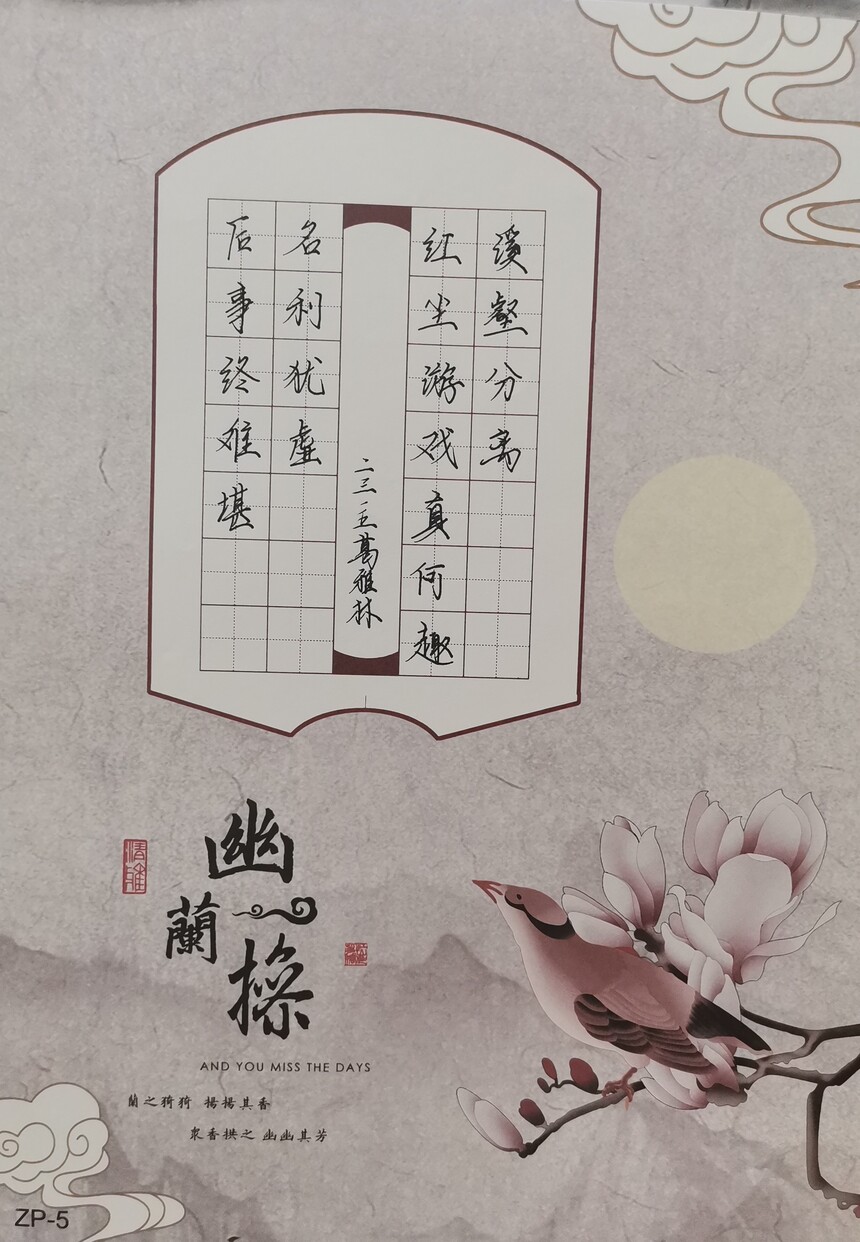 溪壑分离
红尘游戏真何趣
二三 葛雅林
名利犹虚
后事终难堪
幽
蘭
操
清雅
AND YOU MISS THE DAYS
蘭之猗猗 揚揚其香
衆香拱之 幽幽其芳
ZP-5